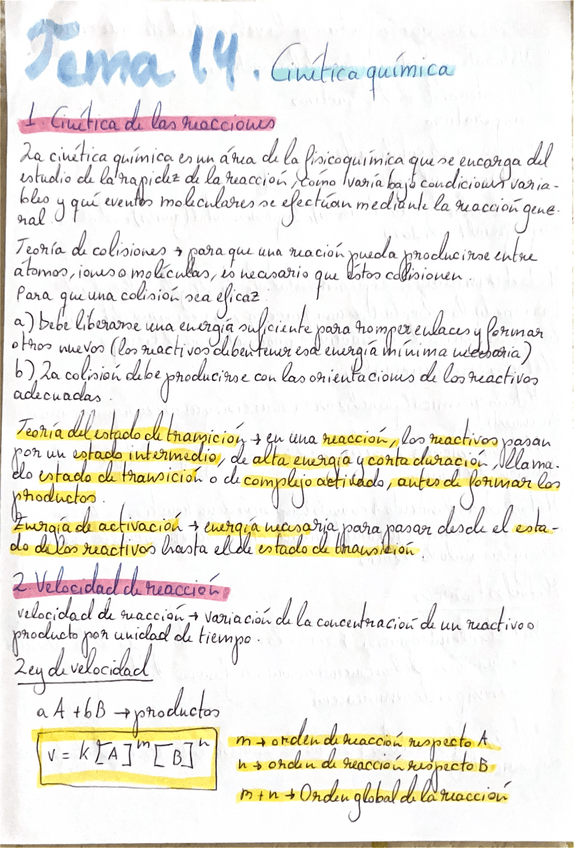 Tema 14. Cinética química
1. Cinética de las reacciones
La cinética química es un área de la fisicoquímica que se encarga del
estudio de la rapidez de la reacción, cómo varía bajo condiciones varia-
bles y qué eventos moleculares se efectúan mediante la reacción gene-
ral.
Teoría de colisiones → para que una reacción pueda producirse entre
átomos, iones o moléculas, es necesario que estos colisionen.
Para que una colisión sea eficaz:
a) Debe liberarse una energía suficiente para romper enlaces y formar
otros nuevos (los reactivos deben tener esa energía mínima necesaria)
b) La colisión debe producirse con las orientaciones de los reactivos
adecuadas.
Teoría del estado de transición → en una reacción, los reactivos pasan
por un estado intermedio, de alta energía y corta duración, llama-
do estado de transición o de complejo activado, antes de formar los
productos.
Energía de activación → energía necesaria para pasar desde el esta-
do de los reactivos hasta el de estado de transición.
2. Velocidad de reacción
velocidad de reacción → variación de la concentración de un reactivo o
producto por unidad de tiempo.
Ley de velocidad
aA + bB → productos
v = K [A]^m [B]^n
m → orden de reacción respecto A
n → orden de reacción respecto B
m+n → Orden global de la reacción